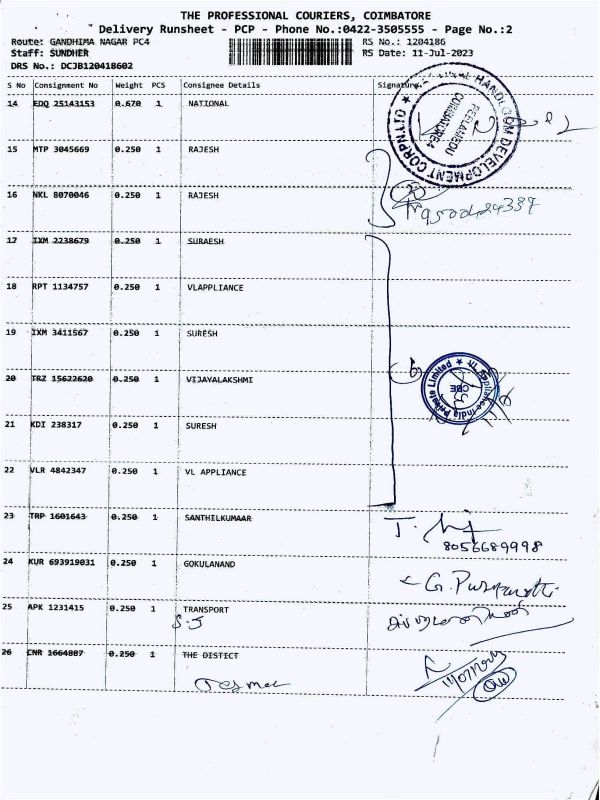 THE PROFESSIONAL COURIERS, COIMBATORE
Delivery Runsheet - PCP - Phone No.:0422-3505555 - Page No.:2
Route: GANDHIMA NAGAR PC4 RS No.: 1204186
Staff: SUNDHER RS Date: 11-Jul-2023
DRS No.: DCJB120418602
S No Consignment No Weight PCS Consignee Details Signature
14 EDQ 25143153 0.670 1 NATIONAL
15 MTP 3045669 0.250 1 RAJESH
16 NKL 8070046 0.250 1 RAJESH
17 IXM 2238679 0.250 1 SURAESH
18 RPT 1134757 0.250 1 VLAPPLIANCE
19 IXM 3411567 0.250 1 SURESH
20 TRZ 15622620 0.250 1 VIJAYALAKSHMI
21 KDI 238317 0.250 1 SURESH
22 VLR 4842347 0.250 1 VL APPLIANCE
23 TRP 1601643 0.250 1 SANTHILKUMAAR
8056689998
24 KUR 693919031 0.250 1 GOKULANAND
25 APK 1231415 0.250 1 TRANSPORT
S-J
26 CNR 1664887 0.250 1 THE DISTICT
HANDLOOM DEVELOPMENT CORPNATO
PEELAMEDU
COIMBATORE-4
VL Appliance India Private Limited
CBE